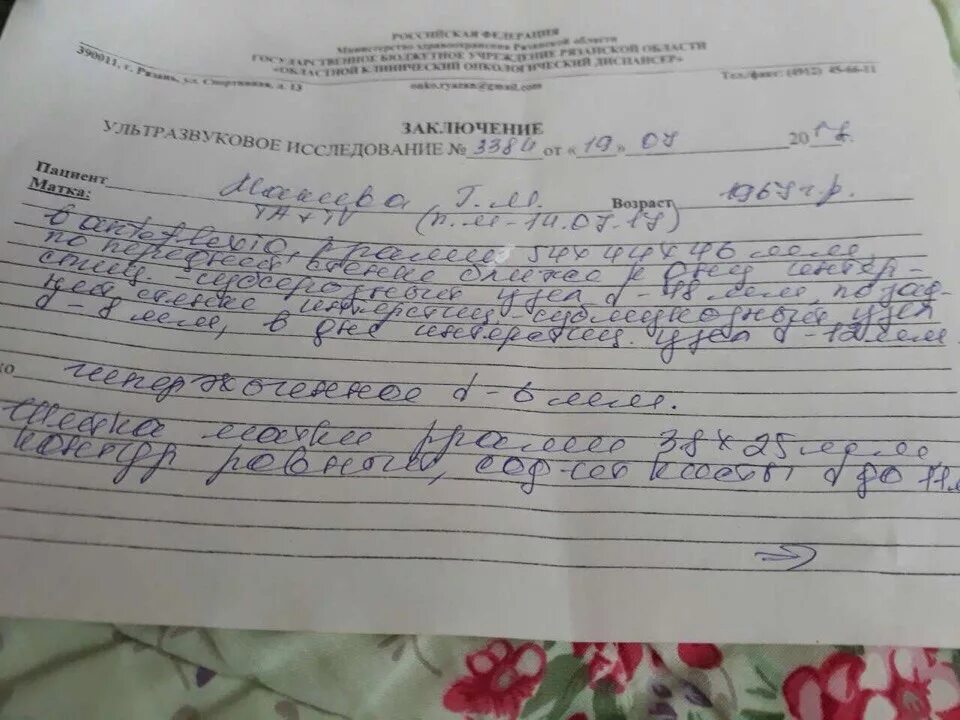 РОССИЙСКАЯ ФЕДЕРАЦИЯ
Министерство здравоохранения Рязанской области
ГОСУДАРСТВЕННОЕ БЮДЖЕТНОЕ УЧРЕЖДЕНИЕ РЯЗАНСКОЙ ОБЛАСТИ
«ОБЛАСТНОЙ КЛИНИЧЕСКИЙ ОНКОЛОГИЧЕСКИЙ ДИСПАНСЕР»
390011, г. Рязань, ул. Спортивная, д. 13 Тел./факс: (4912) 45-66-11
onko.ryazan@gmail.com
ЗАКЛЮЧЕНИЕ
УЛЬТРАЗВУКОВОЕ ИССЛЕДОВАНИЕ № 3384 от «19» 07 20
Пациент Г.М. Возраст 1967 г.р.
Матка: TA + TV (п.м - 14.07.17)
в anteflexio, р-рами 54 х 44 х 46 мм,
по передней стенке ближе к дну интер-
стиц.-субсерозный узел d - 18 мм, по зад-
ней стенке интерстиц.-субмукозный узел
d - 8 мм, в дне интерстиц. узел d - 12 мм.
гиперэхогенное d - 6 мм.
Шейка матки р-рами 38 х 25 мм,
контур ровный, сод-ит кисты d до 11